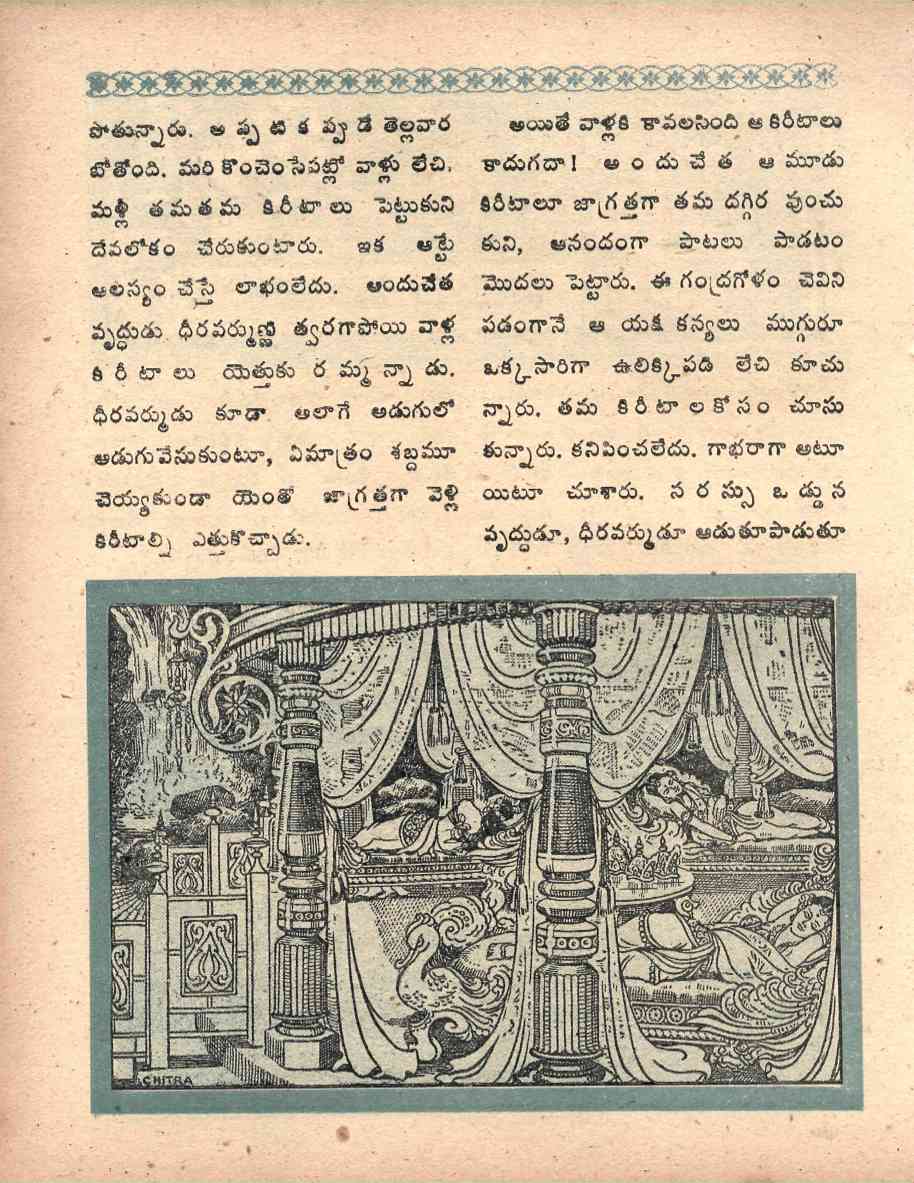 పోతున్నారు. అప్పటికప్పుడే తెల్లవార
బోతోంది. మరి కొంచెంసేపట్లో వాళ్లు లేచి,
మళ్లీ తమతమ కిరీటాలు పెట్టుకుని
దేవలోకం చేరుకుంటారు. ఇక ఆట్టే
ఆలస్యం చేస్తే లాభంలేదు. అందుచేత
వృద్ధుడు ధీరవర్ముణ్ణి త్వరగాపోయి వాళ్ల
కిరీటాలు యెత్తుకు రమ్మన్నాడు.
ధీరవర్ముడు కూడా అలాగే అడుగులో
అడుగువేసుకుంటూ, ఏమాత్రం శబ్దమూ
చెయ్యకుండా యెంతో జాగ్రత్తగా వెళ్లి
కిరీటాల్ని ఎత్తుకొచ్చాడు.
అయితే వాళ్లకి కావలసింది ఆ కిరీటాలు
కాదుగదా! అందుచేత ఆ మూడు
కిరీటాలూ జాగ్రత్తగా తమ దగ్గిర వుంచు
కుని, ఆనందంగా పాటలు పాడటం
మొదలు పెట్టారు. ఈ గంద్రగోళం చెవిని
పడంగానే ఆ యక్ష కన్యలు ముగ్గురూ
ఒక్కసారిగా ఉలిక్కిపడి లేచి కూచు
న్నారు. తమ కిరీటాలకోసం చూసు
కున్నారు. కనిపించలేదు. గాభరాగా అటూ
యిటూ చూశారు. సరస్సు ఒడ్డున
వృద్ధుడూ, ధీరవర్ముడూ ఆడుతూపాడుతూ
CHITRA